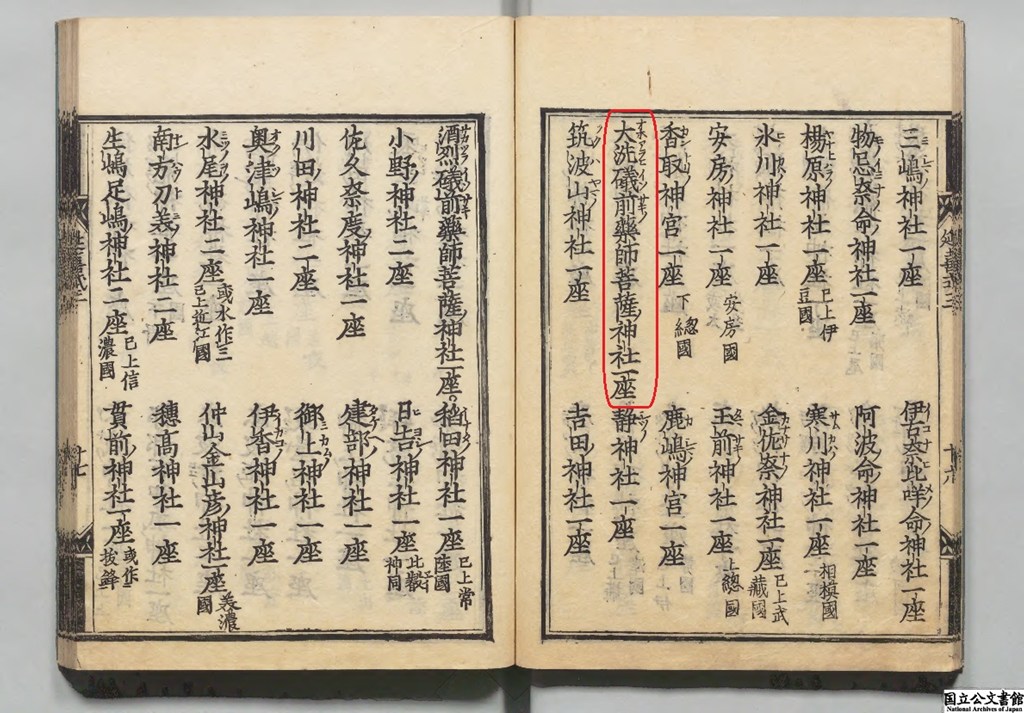 三嶋神社一座 伊古奈比咩命神社一座
物忌奈命神社一座 阿波命神社一座
楊原神社一座 已上伊豆國 寒川神社一座 相摸國
氷川神社一座 金佐奈神社一座 已上武藏國
安房神社一座 安房國 玉前神社一座 上總國
香取神宮一座 下總國 鹿嶋神宮一座
大洗礒前藥師菩薩神社一座 靜神社一座
筑波山神社一座 吉田神社一座
酒烈礒前藥師菩薩神社一座 稻田神社一座 已上常陸國
小野神社二座 日吉神社一座 比叡神同
佐久奈度神社一座 建部神社一座
川田神社二座 御上神社一座
奧津嶋神社一座 伊香神社一座
水尾神社二座 或水作三 已上近江國 仲山金山彥神社一座 美濃國
南方刀美神社二座 穗高神社一座
生嶋足嶋神社二座 已上信濃國 貫前神社一座 或作拔鉾
延喜式三
十六
十七
国立公文書館
National Archives of Japan